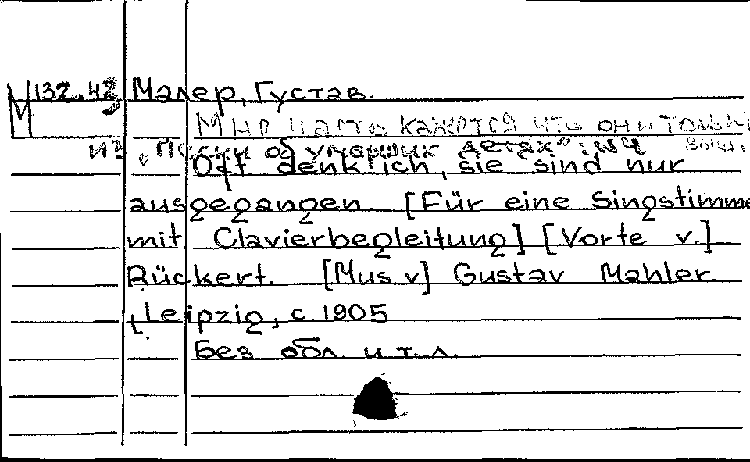 М 132.42 Малер, Густав.
Мне часто кажется что они только
из „Песни об умерших детях":
Oft denk ich, sie sind nur
ausgegangen. [Für eine Singstimme
mit Clavierbegleitung] [Vorte v.]
Rückert. [Mus v] Gustav Mahler
[Leipzig, c 1905
Без обл. и т.л.